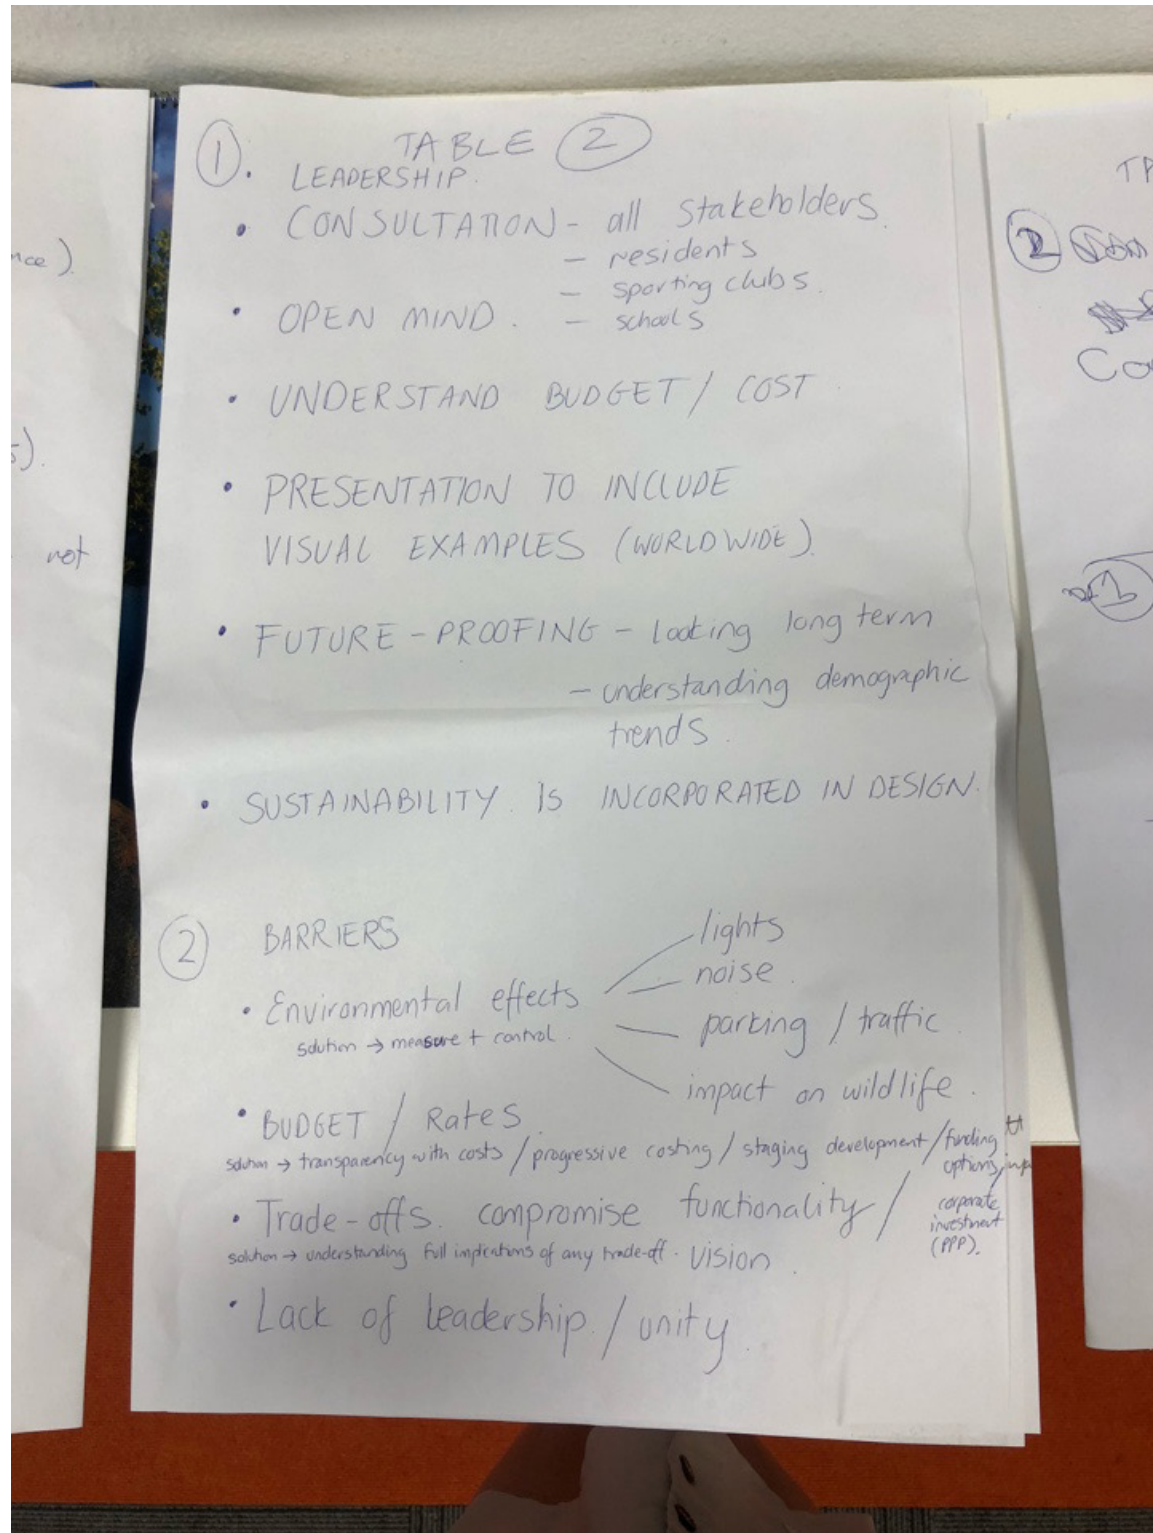 TABLE 2
1. LEADERSHIP.
• CONSULTATION - all stakeholders.
- residents
- sporting clubs.
• OPEN MIND. - schools
• UNDERSTAND BUDGET / COST
• PRESENTATION TO INCLUDE
VISUAL EXAMPLES (WORLDWIDE).
• FUTURE-PROOFING - Looking long term
- understanding demographic
trends.
• SUSTAINABILITY. IS INCORPORATED IN DESIGN.
2 BARRIERS
• Environmental effects
solution → measure + control.
lights
noise.
parking / traffic.
impact on wildlife.
• BUDGET / Rates.
solution → transparency with costs / progressive costing / staging development / funding
options,
corporate
investment
(PPP).
• Trade-offs. compromise functionality /
vision.
solution → understanding full implications of any trade-off.
• Lack of leadership. / unity.
nce).
s).
not
TA
2
Co
1